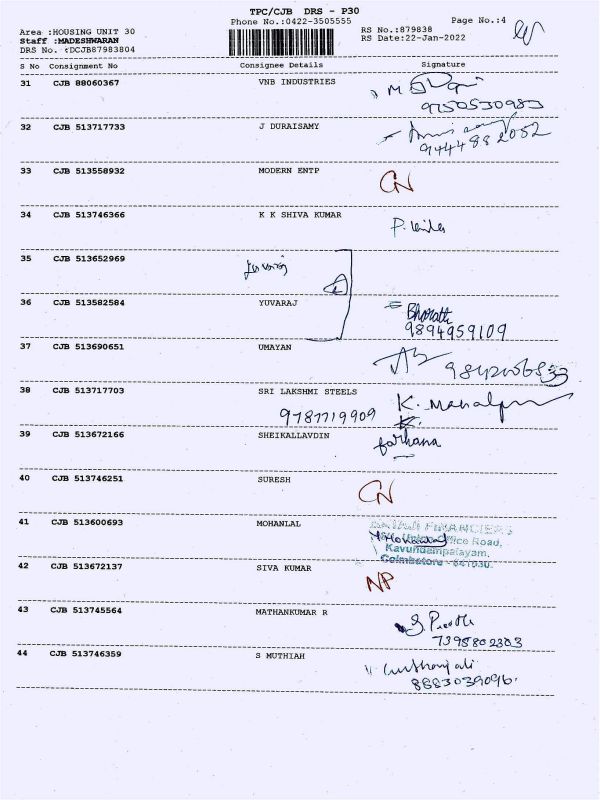 TPC/CJB DRS - P30
Phone No.:0422-3505555
Page No.:4
Area :HOUSING UNIT 30
RS No.:879838
Staff :MADESHWARAN
RS Date:22-Jan-2022
DRS No. :DCJB87983804
S No Consignment No Consignee Details Signature
31 CJB 88060367 VNB INDUSTRIES
9750530983
32 CJB 513717733 J DURAISAMY
9444882052
33 CJB 513558932 MODERN ENTP CN
34 CJB 513746366 K K SHIVA KUMAR
35 CJB 513652969
36 CJB 513582584 YUVARAJ Bharath
9894959109
37 CJB 513690651 UMAYAN
38 CJB 513717703 SRI LAKSHMI STEELS
9787719909
39 CJB 513672166 SHEIKALLAVDIN farhana
40 CJB 513746251 SURESH CN
41 CJB 513600693 MOHANLAL
FINANCIERS
Office Road,
Kavundampalayam,
Coimbatore - 641030.
42 CJB 513672137 SIVA KUMAR NP
43 CJB 513745564 MATHANKUMAR R
7395802303
44 CJB 513746359 S MUTHIAH
8883039096